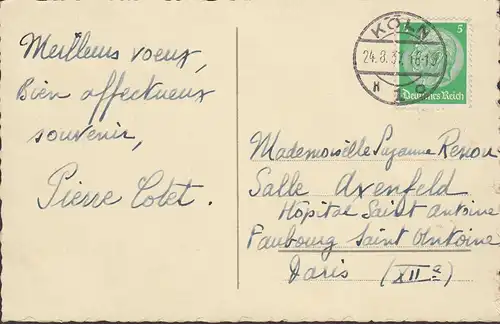 Meilleurs voeux,
Bien affectueux
souvenir,
Pierre Cotet.
KÖLN
24.8.37.16-19
5
Deutsches Reich
Mademoiselle Suzanne Renou
Salle Axenfeld
Hôpital Saint Antoine
Faubourg Saint Antoine
Paris (XIIe)